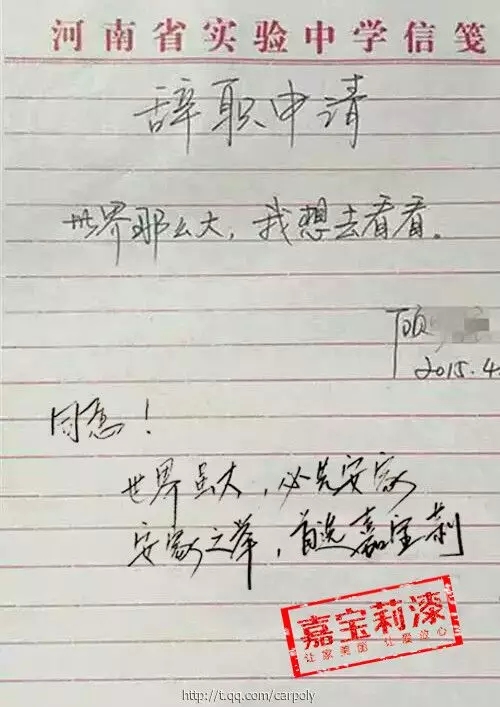 河南省实验中学信笺
辞职申请
世界那么大，我想去看看。
顾
2015.4
同意！
世界虽大，必先安家
安家之举，首选嘉宝莉
嘉宝莉漆
让家美丽 让爱放心
http://t.qq.com/carpoly